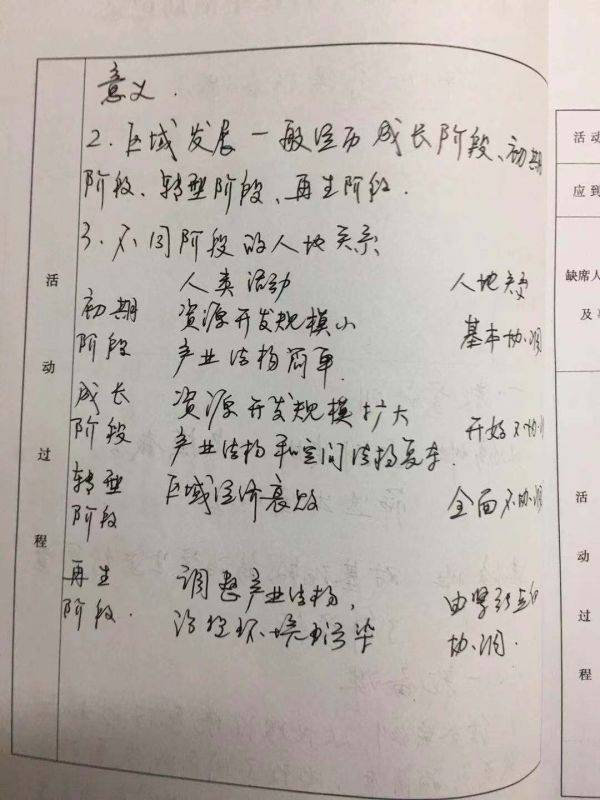 意义.
2. 区域发展一般经历成长阶段、初期
阶段、转型阶段、再生阶段.
3. 不同阶段的人地关系
人类活动 人地关系
初期阶段 资源开发规模小 基本协调
产业结构简单.
成长阶段 资源开发规模扩大 开始不协调
产业结构和空间结构复杂.
转型阶段 区域经济衰败 全面不协调
再生阶段. 调整产业结构, 由紧张到
治理环境污染 协调.
活动过程
活动
应到
缺席人
及
活动过程